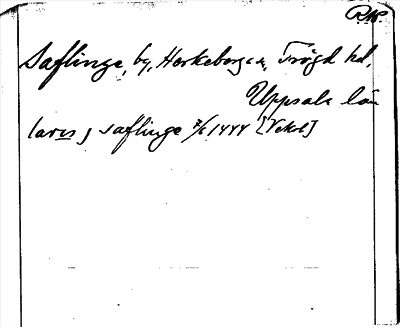 RAP.
Saflinge, by, Härkeberga, Trögd hd,
Uppsala län
laris j saflinge 7/6 1444 [Vekst]